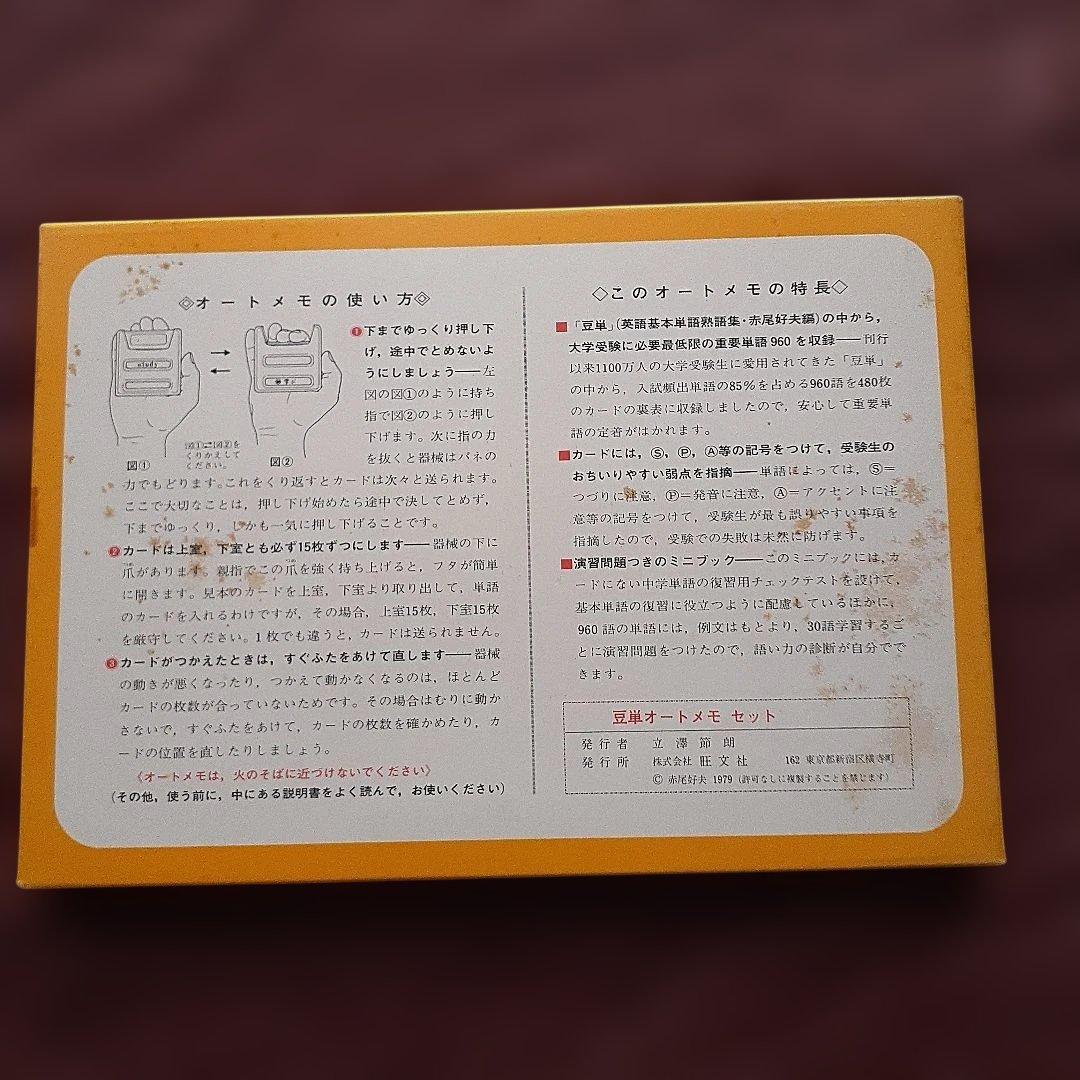 ◇オートメモの使い方◇
❶下までゆっくり押し下
げ，途中でとめないよ
うにしましょう――左
図の図①のように持ち
指で図②のように押し
下げます。次に指の力
を抜くと器械はバネの
study
図①⇄図②を
くりかえして
ください。
図①
図②
力でもどります。これをくり返すとカードは次々と送られます。
ここで大切なことは，押し下げ始めたら途中で決してとめず，
下までゆっくり，しかも一気に押し下げることです。
❷カードは上室，下室とも必ず15枚ずつにします――器械の下に
爪があります。親指でこの爪を強く持ち上げると，フタが簡単
に開きます。見本のカードを上室，下室より取り出して，単語
のカードを入れるわけですが，その場合，上室15枚，下室15枚
を厳守してください。1枚でも違うと，カードは送られません。
❸カードがつかえたときは，すぐふたをあけて直します――器械
の動きが悪くなったり，つかえて動かなくなるのは，ほとんど
カードの枚数が合っていないためです。その場合はむりに動か
さないで，すぐふたをあけて，カードの枚数を確かめたり，カ
ードの位置を直したりしましょう。
《オートメモは，火のそばに近づけないでください》
(その他，使う前に，中にある説明書をよく読んで，お使いください)
◇このオートメモの特長◇
■「豆単」(英語基本単語熟語集・赤尾好夫編)の中から，
大学受験に必要最低限の重要単語960を収録――刊行
以来1100万人の大学受験生に愛用されてきた「豆単」
の中から，入試頻出単語の85％を占める960語を480枚
のカードの裏表に収録しましたので，安心して重要単
語の定着がはかれます。
■カードには，Ⓢ，Ⓟ，Ⓐ等の記号をつけて，受験生の
おちいりやすい弱点を指摘――単語によっては，Ⓢ＝
つづりに注意，Ⓟ＝発音に注意，Ⓐ＝アクセントに注
意等の記号をつけて，受験生が最も誤りやすい事項を
指摘したので，受験での失敗は未然に防げます。
■演習問題つきのミニブック――このミニブックには，カ
ードにない中学単語の復習用チェックテストを設けて，
基本単語の復習に役立つように配慮しているほかに，
960語の単語には，例文はもとより，30語学習するご
とに演習問題をつけたので，語い力の診断が自分でで
きます。
豆単オートメモ セット
発行者 立澤節朗
発行所 株式会社 旺文社 162 東京都新宿区横寺町
© 赤尾好夫 1979 (許可なしに複製することを禁じます)